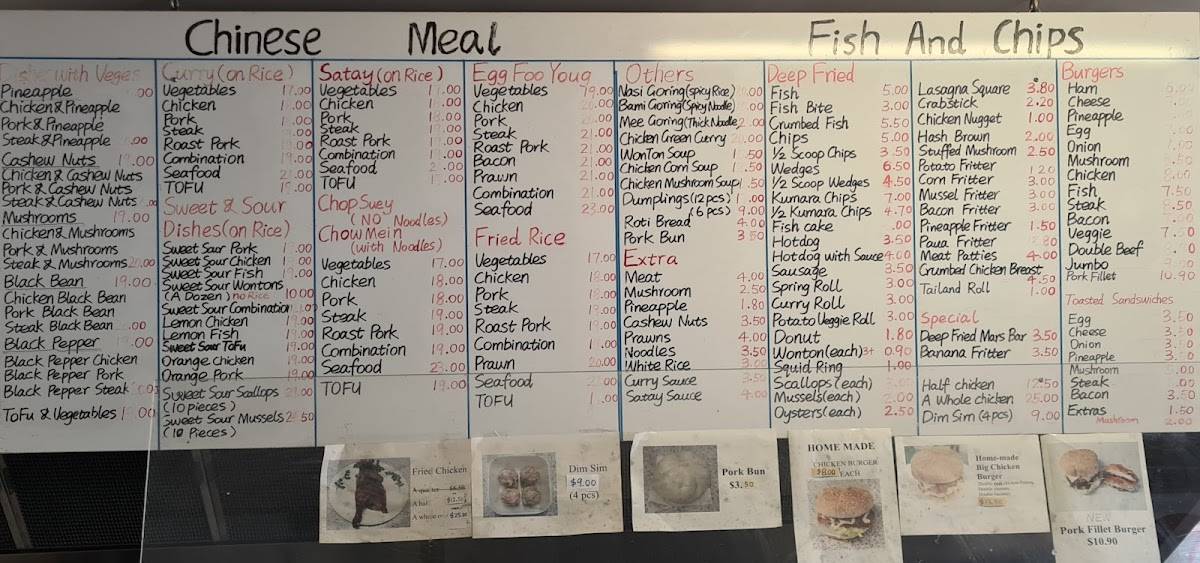 Chinese Meal
Fish And Chips
Dishes with Veges
Pineapple 00
Chicken & Pineapple
Pork & Pineapple
Steak & Pineapple .00
Cashew Nuts 19.00
Chicken & Cashew Nuts
Pork & Cashew Nuts
Steak & Cashew Nuts
Mushrooms 19.00
Chicken & Mushrooms
Pork & Mushrooms
Steak & Mushrooms
Black Bean 19.00
Chicken Black Bean
Pork Black Bean
Steak Black Bean .00
Black Pepper 19.00
Black Pepper Chicken
Black Pepper Pork
Black Pepper Steak
ToFu & Vegetables
Curry (on Rice)
Vegetables 17.00
Chicken
Pork
Steak
Roast Pork
Combination 19.00
Seafood 21.00
TOFU
Sweet & Sour
Dishes (on Rice)
Sweet Sour Pork
Sweet Sour Chicken
Sweet Sour Fish 19.00
Sweet Sour Wontons
(A Dozen) no Rice 10.00
Sweet Sour Combination
Lemon Chicken 19.00
Lemon Fish 19.00
Sweet Sour ToFu 19.00
Orange Chicken 19.00
Orange Pork 19.00
Sweet Sour Sallops
(10 pieces)
Sweet Sour Mussels
(10 Pieces)
Satay (on Rice)
Vegetables 17.00
Chicken
Pork 18.00
Steak 19.00
Roast Pork
Combination
Seafood
TOFU
Chop Suey
(NO Noodles)
Chow Mein
(with Noodles)
Vegetables 17.00
Chicken 18.00
Pork 18.00
Steak 19.00
Roast Pork 19.00
Combination 19.00
Seafood 23.00
TOFU 19.00
Egg Foo Youg
Vegetables 19.00
Chicken
Pork
Steak 21.00
Roast Pork 21.00
Bacon 21.00
Prawn 21.00
Combination 21.00
Seafood 23.00
Fried Rice
Vegetables 17.00
Chicken 18.00
Pork 18.00
Steak 19.00
Roast Pork 19.00
Combination
Prawn 20.00
Seafood
TOFU
Others
Nasi Goring (spicy Rice)
Bami Goring (spicy Noodle)
Mee Goring (Thick Noodle)
Chicken Green Curry
WonTon Soup
Chicken Corn Soup
Chicken Mushroom Soup
Dumplings (12 pcs)
(6 pcs) 9.00
Roti Bread 4.00
Pork Bun 3.50
Extra
Meat 4.00
Mushroom 2.50
Pineapple 1.80
Cashew Nuts 3.50
Prawns 4.00
Noodles 3.50
White Rice 3.00
Curry Sauce 3.50
Satay Sauce 4.00
Deep Fried
Fish 5.00
Fish Bite 3.00
Crumbed Fish 5.50
Chips 5.00
½ Scoop Chips 3.50
Wedges 6.50
½ Scoop Wedges 4.50
Kumara Chips 7.00
½ Kumara Chips 4.70
Fish cake .00
Hotdog 3.50
Hotdog with Sauce 4.00
Sausage 3.50
Spring Roll 3.00
Curry Roll 3.00
Potato Veggie Roll 3.00
Donut 1.80
Wonton (each) 3+ 0.90
Squid Ring 1.00
Scallops (each)
Mussels (each) 2.00
Oysters (each) 2.50
Lasagna Square 3.80
Crabstick 2.20
Chicken Nugget 1.00
Hash Brown 2.00
Stuffed Mushroom 2.50
Potato Fritter 1.20
Corn Fritter 3.00
Mussel Fritter 3.00
Bacon Fritter 3.00
Pineapple Fritter 1.50
Paua Fritter
Meat Patties 4.00
Crumbed Chicken Breast
4.50
Tailand Roll 1.00
Special
Deep Fried Mars Bar 3.50
Banana Fritter 3.50
Half chicken 12.50
A Whole chicken 25.00
Dim Sim (4 pcs) 9.00
Burgers
Ham
Cheese
Pineapple
Egg
Onion
Mushroom
Chicken
Fish 7.50
Steak 8.50
Bacon
Veggie
Double Beef
Jumbo
Pork Fillet 10.90
Toasted Sandwiches
Egg
Cheese
Onion
Pineapple
Mushroom
Steak
Bacon 3.50
Extras 1.50
Mushroom 2.00
Fried Chicken
A quarter
A half $12.50
A whole one $25.00
Dim Sim
$9.00
(4 pcs)
Pork Bun
$3.50
HOME MADE
CHICKEN BURGER
$8.00 EACH
Home-made
Big Chicken
Burger
NEW
Pork Fillet Burger
$10.90